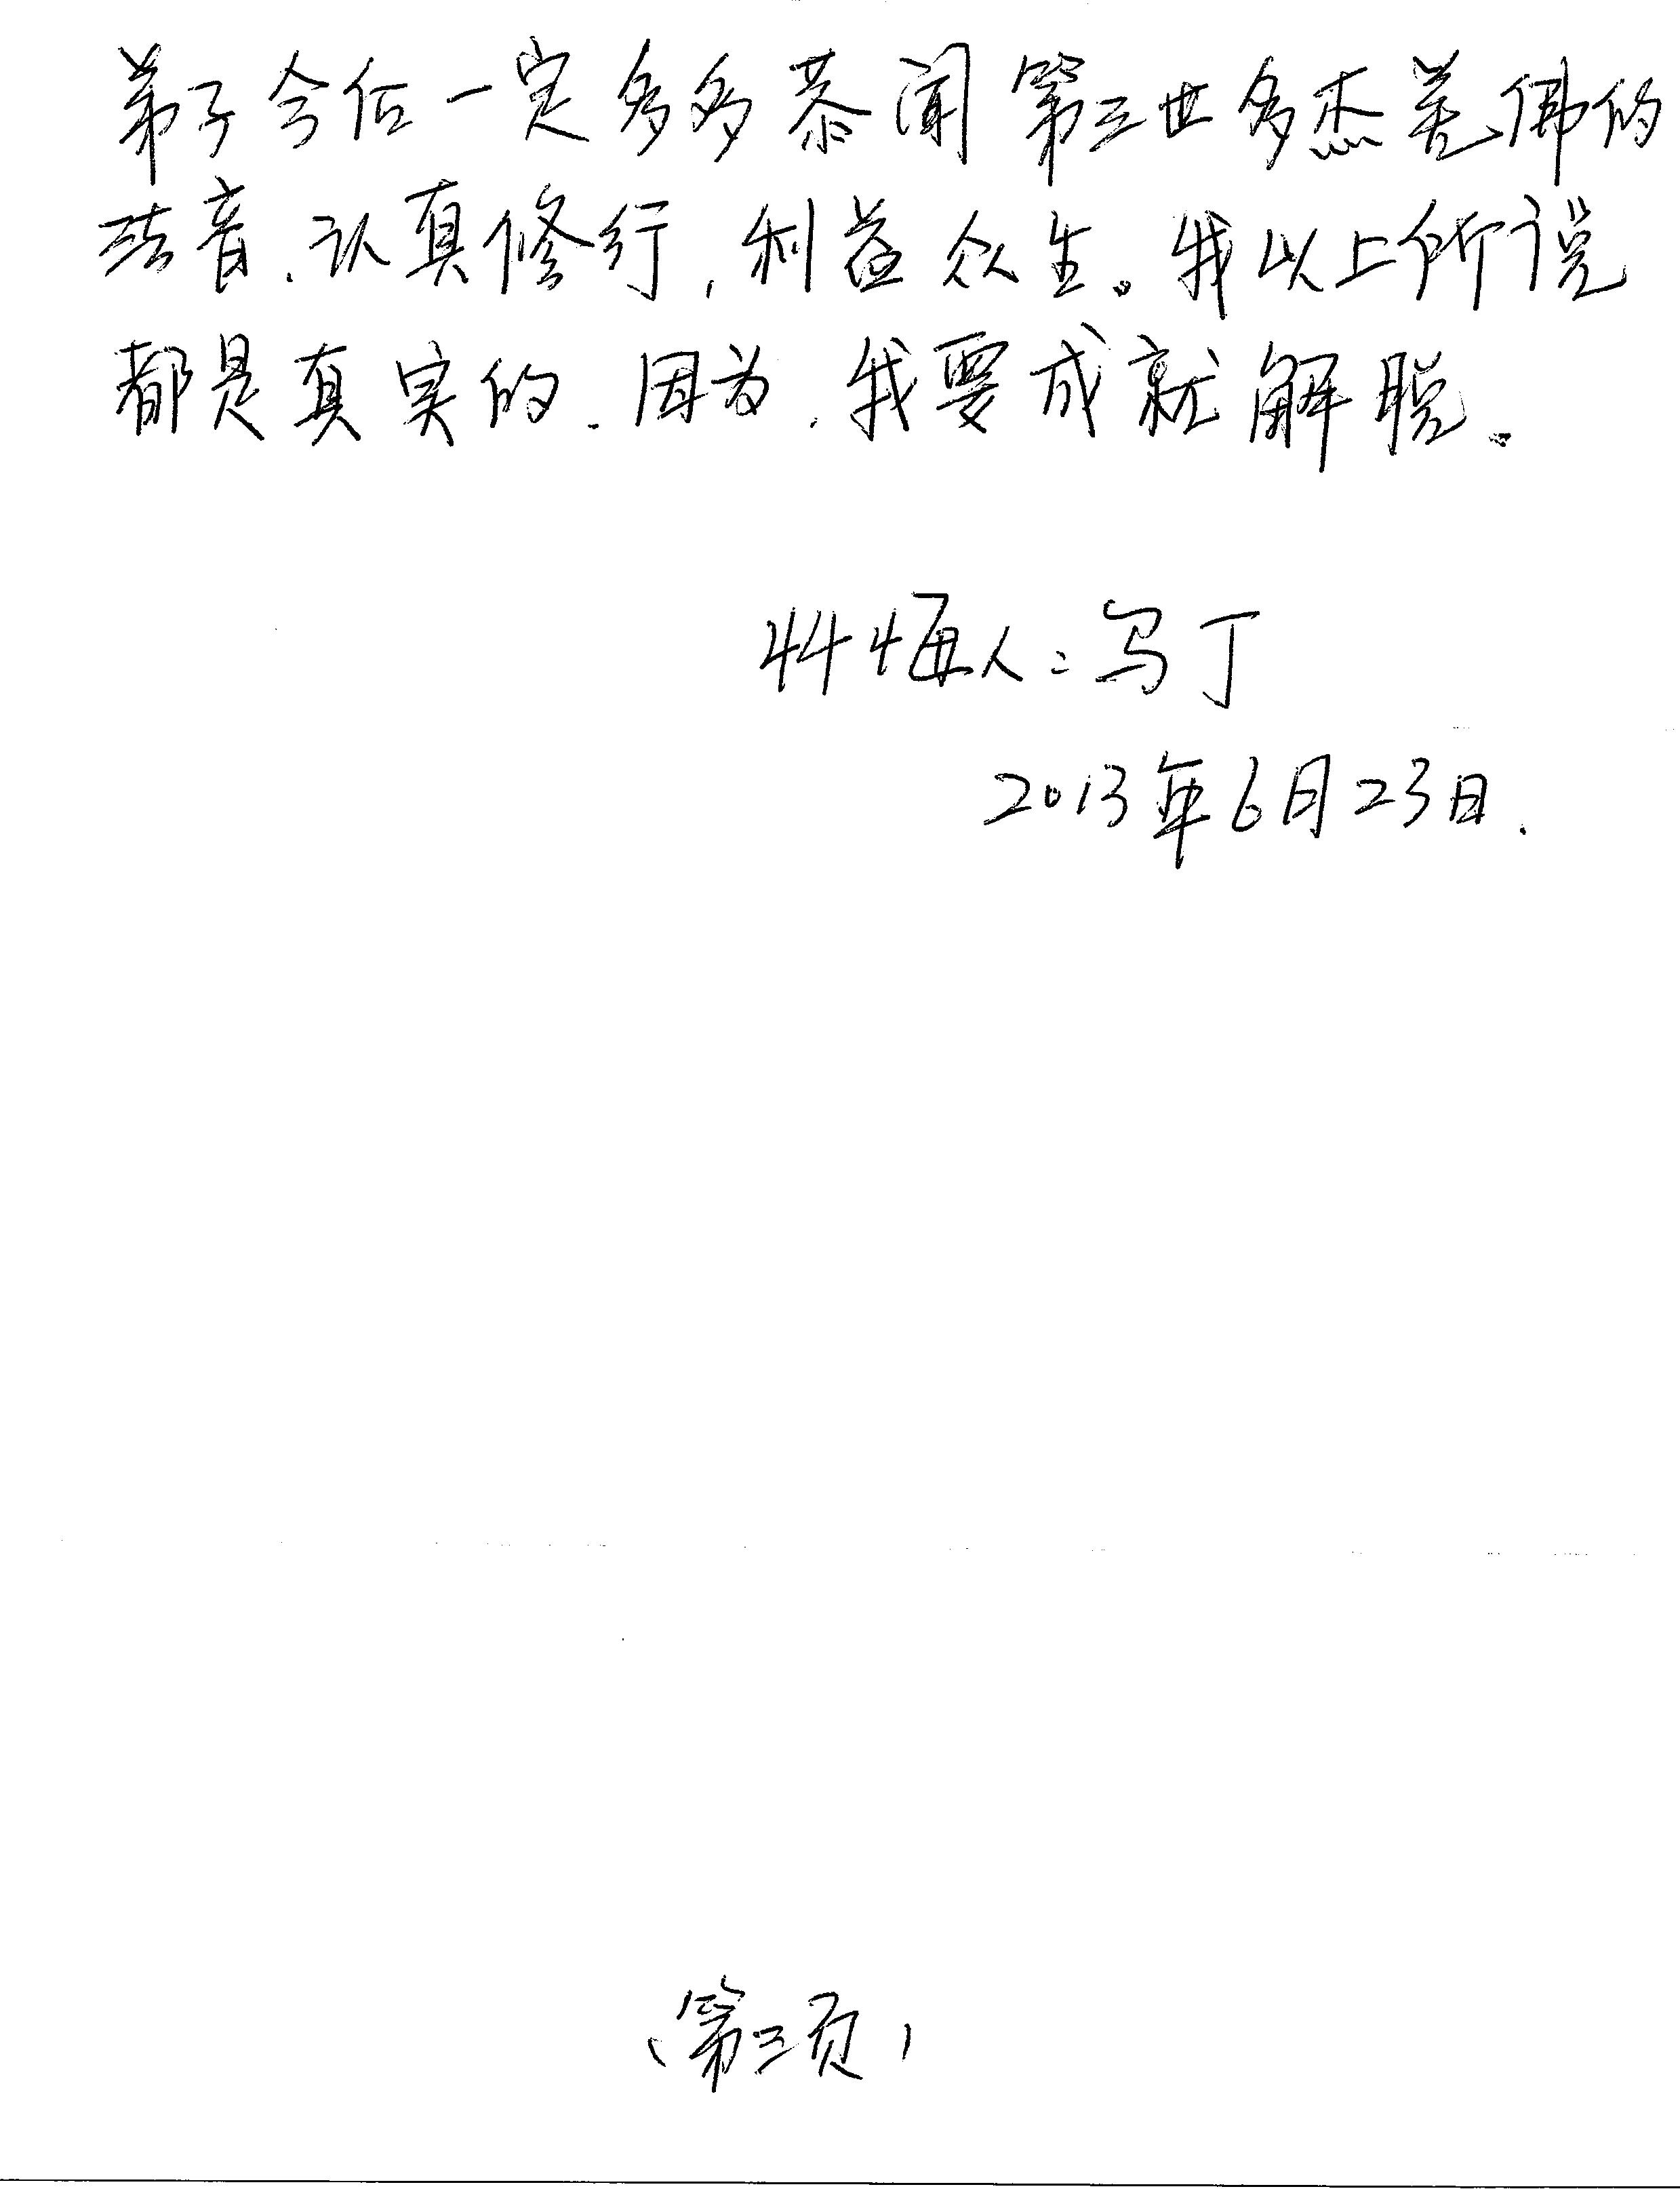 弟子今后一定多多恭闻第三世多杰羌佛的
法音.认真修行,利益众生。我以上所说
都是真实的.因为.我要成就解脱。
忏悔人:马丁
2013年6月23日.
(第三页)